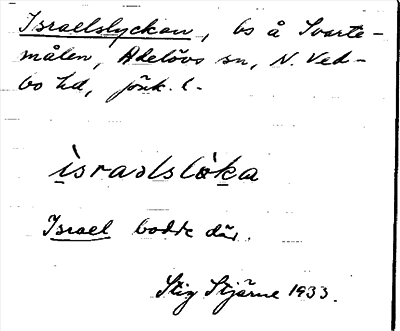 Israelslyckan, bs å Svarte-
målen, Adelövs sn, N. Ved-
bo hd, Jönk. l.
ìsraəlsløka
Israel bodde där.
Stig Stjärne 1933.